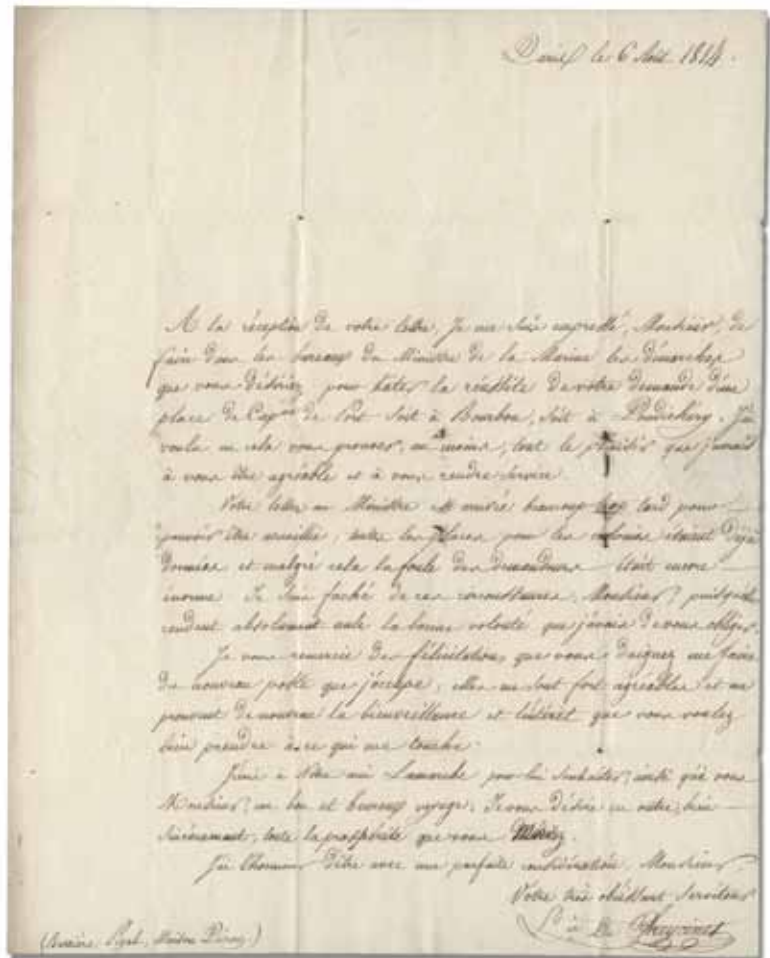 Paris le 6 Août 1814.
A la réception de votre lettre, Je me suis empressé, Monsieur, de
faire dans les bureaux du Ministre de la Marine les démarches
que vous désiriez pour hater la réussite de votre demande d'une
place de Cap.ne de Port soit à Bourbon, soit à Pondichery. J'ai
voulu en cela vous prouver, au moins, tout le plaisir que j'aurais
à vous être agréable et à vous rendre service.
Votre lettre au Ministre est arrivée beaucoup trop tard pour
pouvoir être accueillie, toutes les places pour les colonies étaient déjà
données et malgré cela la foule des demandeurs était encore
énorme. Je suis faché de ces circonstances, Monsieur, puisqu'elles
rendent absolument nulle la bonne volonté que j'avais de vous obliger.
Je vous remercie des félicitations que vous daignez me faire
du nouveau poste que j'occupe, elles me sont fort agréables et me
prouvent de nouveau la bienveillance et l'intérêt que vous voulez
bien prendre à ce qui me touche.
à Votre ami Lamarche pour lui souhaiter, ainsi qu'à vous
Monsieur, un bon et heureux voyage. Je vous désire en outre, bien
sincèrement, toute la prospérité que vous Méritez.
J'ai l'honneur d'être avec une parfaite considération, Monsieur,
Votre très obéissant Serviteur